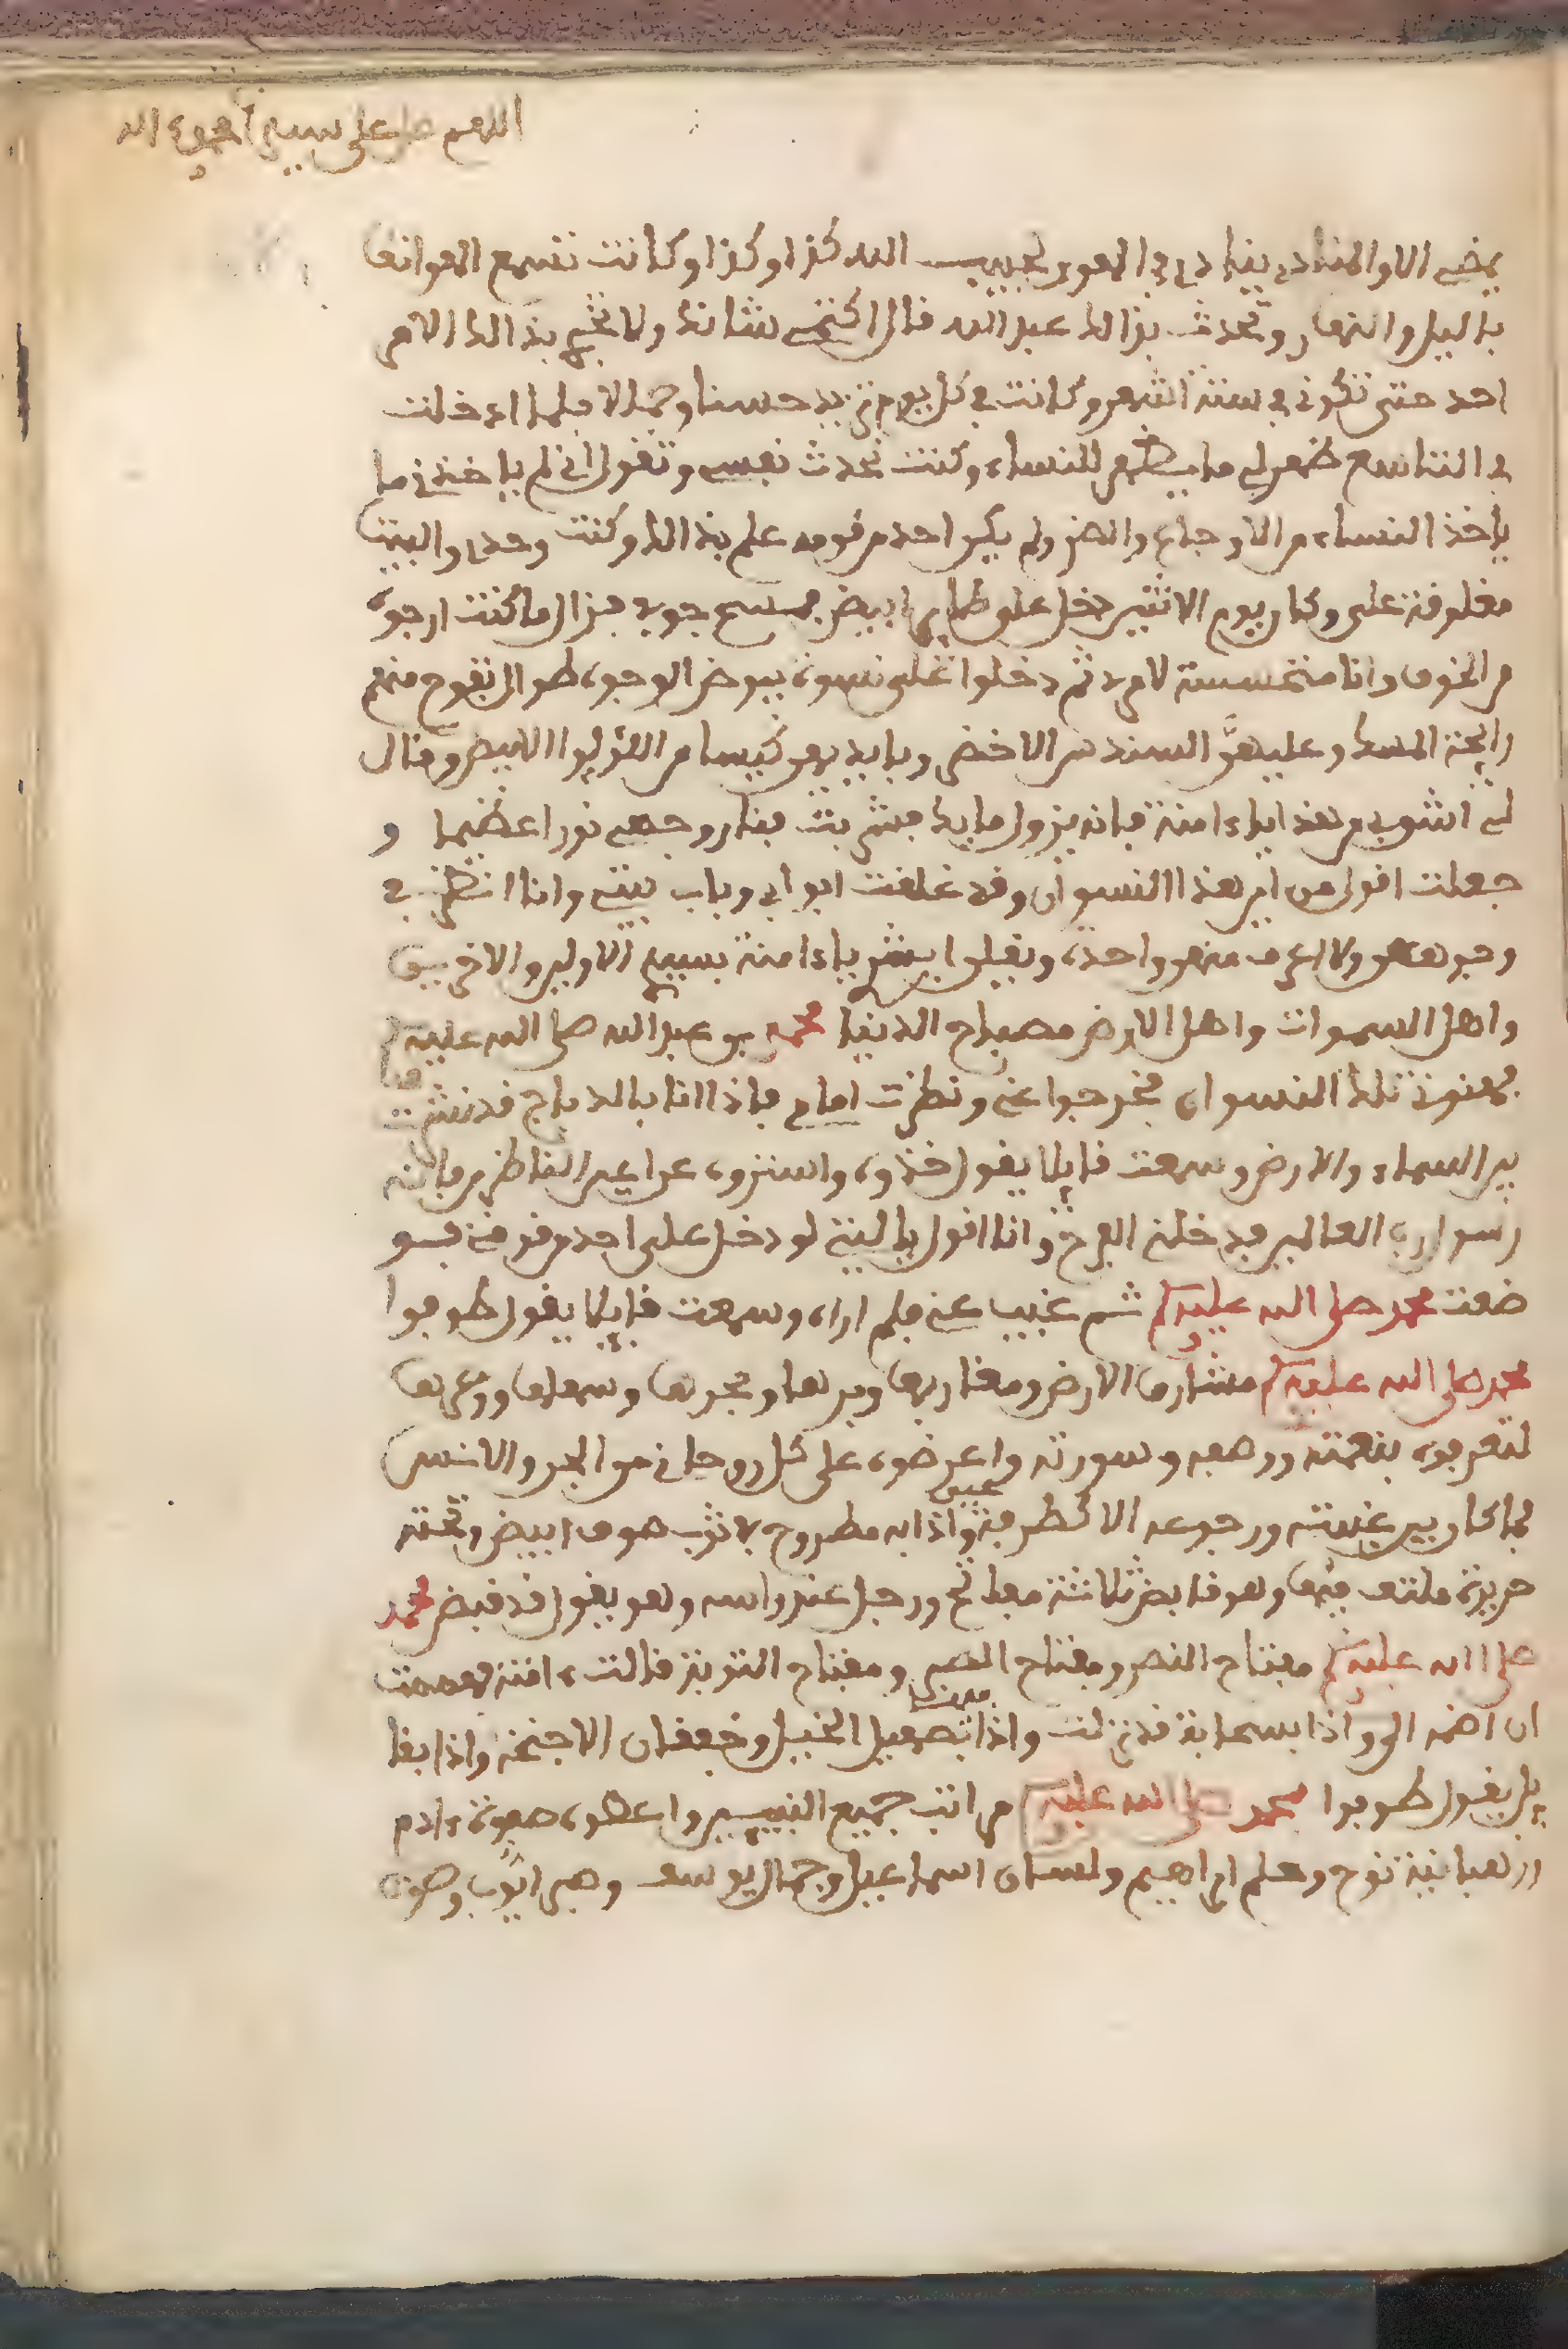 اللهم صل على سيدنا محمد واله
يمضى الا والمنادى ينادى فى الهوى لحبيب الله كذا وكذا وكانت تسمع الهواتف
باليل والنهار وتحدث بذالك عبد الله فقال اكتمى شانك ولا تخبرى بذالك الامر
احد حتى تكون فى ستة اشهر وكانت فى كل يوم تزيد حسنا وجمالا فلما ادخلت
فى التاسع ظهر لى ما يظهر للنساء وكنت نحدث نفسى ونقول انى لم ياخذنى ما
ياخذ النساء من الاوجاع والضر ولم يكن احد من قومه علم بذالك وكنت وحدى والبيت
مغلوقة على وكان يوم الاثنين دخل على طاير ابيض فمسح جودى فزال ما كنت ارجوه
من الخوف وانا متحسسة لامرى ثم دخلوا على نسوة بيوض الوجوه طوال تفوح منهم
رايحة المسك وعليهن السندس الاخضر وبايديهن كيسا من اللولوا الابيض وقال
لى اشربى من هذا ياءامنة فانه يزول ما بك فشربت فنار وجهى نورا عظيما و
جعلت اقول من اين هذا النسوان وقد غلقت ابوابى وباب بيتى وانا انظر فى
وجوههن ولا اعرف منهن واحدة وبقيلوا ابشر ياءامنة بسيد الاولين والاخرين
واهل السموات واهل الارض مصباح الدنيا محمد بن عبد الله صلى الله عليه
فمعنون تلك النسوان فخرجوا عنى ونظرت امامى فاذا انا بالدباج قد نشرت
بين السماء والارض وسمعت قايلا يقول خذوه واستروه عن اعين الناظرين فانه
رسول رب العالمين فدخلنى الفرح وانا اقول ياليتى لو دخل على احد من قومى فسو
ضعت محمد صلى الله عليه ثم غيب عنى فلم اراه وسمعت قايلا يقول طوفوا
محمد صلى الله عليه مشارق الارض ومغاربها وبرها وبحرها وسهلها ووعرها
لتعرفوه بنعمته ووصفه وسورته واعرضوه على كل روحانى من الجن والانس
فما كان بين غيبته ورجوعه الا كطرفة عين واذا به مطروح فى ثوب صوف ابيض وتحته
حريرة ملتف فيها وهو قابض ثلاثة مفاتح ورجل عند راسه وهو يقول قد قبض محمد
صلى الله عليه مفتاح النصر ومفتاح الصبر ومفتاح التوبة قالت ءامنة فهممت
ان اضمه الى واذا بسحابة قد نزلت واذا بصهيل الخيل وخفقان الاجنحة واذا بقا
يل يقول طوفوا محمد صلى الله عليه مراتب جميع النبيين واعطوه صفوة ءادم
ورهبانية نوح وحلم ابراهيم ولسان اسماعيل وجمال يوسف وصبر ايوب وصوت